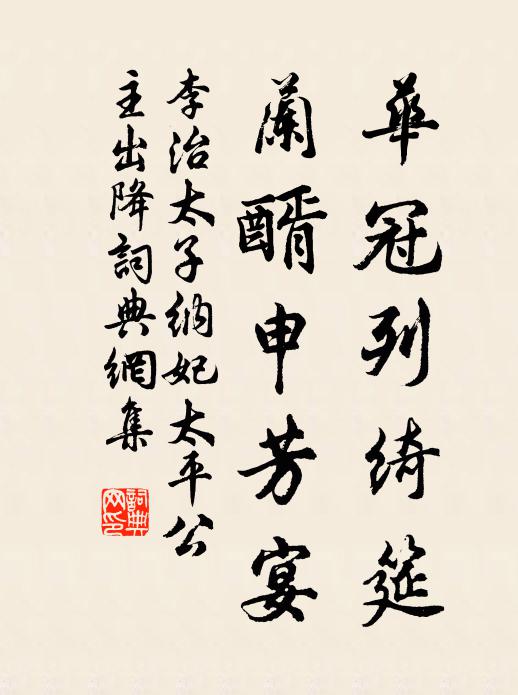 華冠列綺筵
蘭醑申芳宴
李治太子納妃太平公
主出降詞典網集
詞典網印